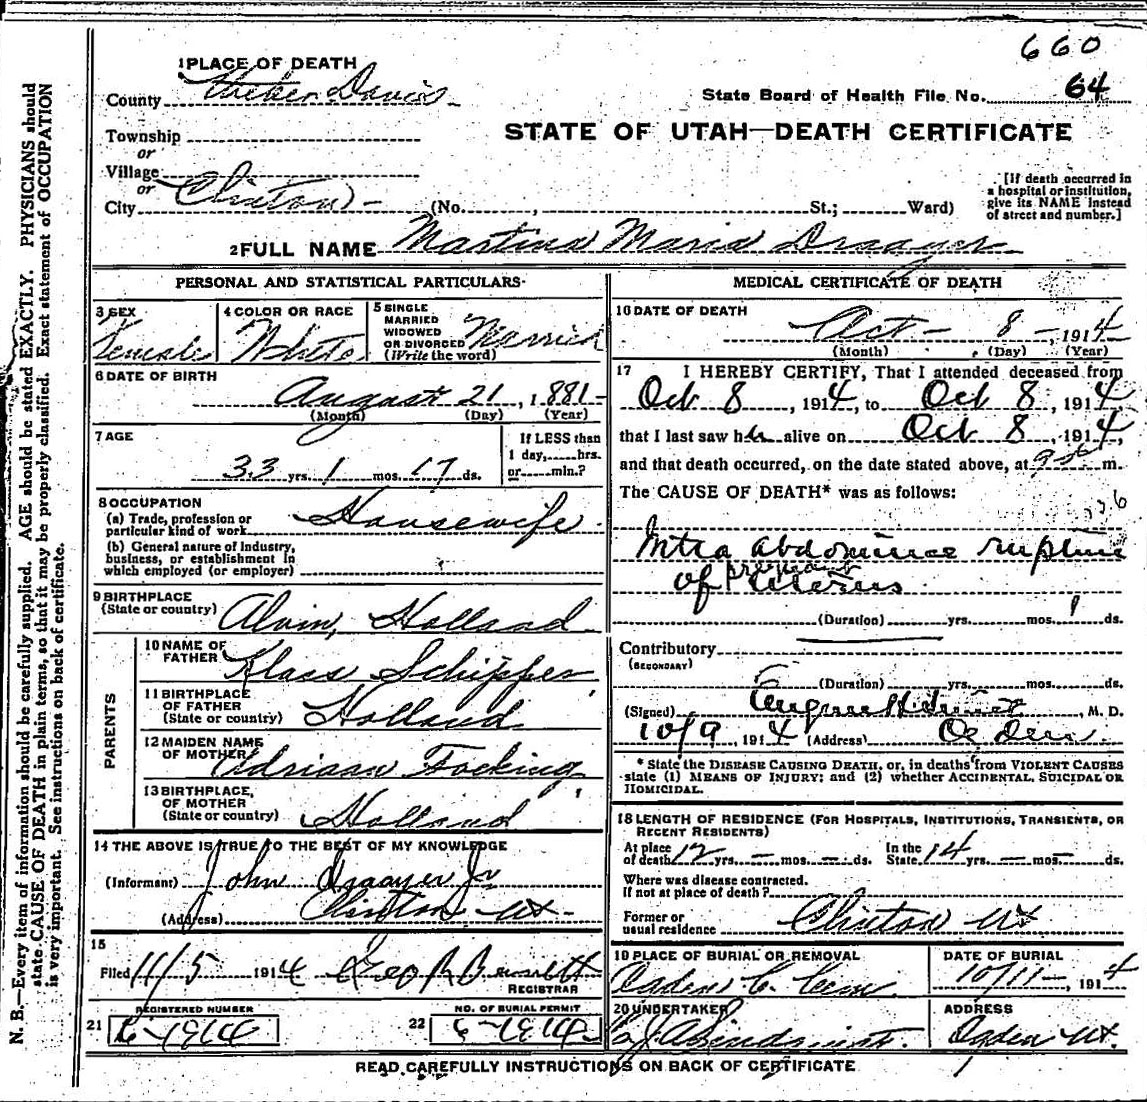 660
1 PLACE OF DEATH
County Weber Davis
State Board of Health File No. 64
Township
or
STATE OF UTAH—DEATH CERTIFICATE
Village
or
City Clinton - (No. , St.; Ward)
[If death occurred in
a hospital or institution,
give its NAME instead
of street and number.]
2 FULL NAME Martina Maria Draayer
PERSONAL AND STATISTICAL PARTICULARS
3 SEX
Female
4 COLOR OR RACE
White
5 SINGLE
MARRIED
WIDOWED
OR DIVORCED
(Write the word)
Married
6 DATE OF BIRTH
August 21, 1881-
(Month) (Day) (Year)
7 AGE
33 yrs. 1 mos. 17 ds.
If LESS than
1 day, hrs.
or min.?
8 OCCUPATION
(a) Trade, profession or
particular kind of work Housewife
(b) General nature of Industry,
business, or establishment in
which employed (or employer)
9 BIRTHPLACE
(State or country) Holland
PARENTS
10 NAME OF
FATHER Klaas Schipper
11 BIRTHPLACE
OF FATHER
(State or country) Holland
12 MAIDEN NAME
OF MOTHER Adriaan Focking
13 BIRTHPLACE,
OF MOTHER
(State or country) Holland
14 THE ABOVE IS TRUE TO THE BEST OF MY KNOWLEDGE
(Informant) John Draayer Jr
(Address) Clinton Ut-
15
Filed 11/5 1914 Geo
REGISTRAR
REGISTERED NUMBER
21 6-1914
NO. OF BURIAL PERMIT
22 6-1914
MEDICAL CERTIFICATE OF DEATH
16 DATE OF DEATH
Oct - 8 -, 1914
(Month) (Day) (Year)
17 I HEREBY CERTIFY, That I attended deceased from
Oct 8, 1914, to Oct 8, 1914,
that I last saw her alive on Oct 8, 1914,
and that death occurred, on the date stated above, at m.
The CAUSE OF DEATH* was as follows:
Intra abdominal rupture
pregnant
of uterus
(Duration) yrs. mos. 1 ds.
Contributory
(SECONDARY)
(Duration) yrs. mos. ds.
(Signed) M. D.
10/9, 1914 (Address) Ogden
* State the DISEASE CAUSING DEATH, or, in deaths from VIOLENT CAUSES
state (1) MEANS OF INJURY; and (2) whether ACCIDENTAL, SUICIDAL OR
HOMICIDAL.
18 LENGTH OF RESIDENCE (FOR HOSPITALS, INSTITUTIONS, TRANSIENTS, OR
RECENT RESIDENTS)
At place
of death 12 yrs. - mos. - ds.
In the
State 14 yrs. - mos. - ds.
Where was disease contracted.
If not at place of death?
Former or
usual residence Clinton Ut
19 PLACE OF BURIAL OR REMOVAL
Ogden C. Cem.
DATE OF BURIAL
10/11-, 1914
20 UNDERTAKER
ADDRESS
Ogden Ut.
READ CAREFULLY INSTRUCTIONS ON BACK OF CERTIFICATE
N. B.—Every item of information should be carefully supplied. AGE should be stated EXACTLY. PHYSICIANS should
state CAUSE OF DEATH in plain terms, so that it may be properly classified. Exact statement of OCCUPATION
is very important. See instructions on back of certificate.